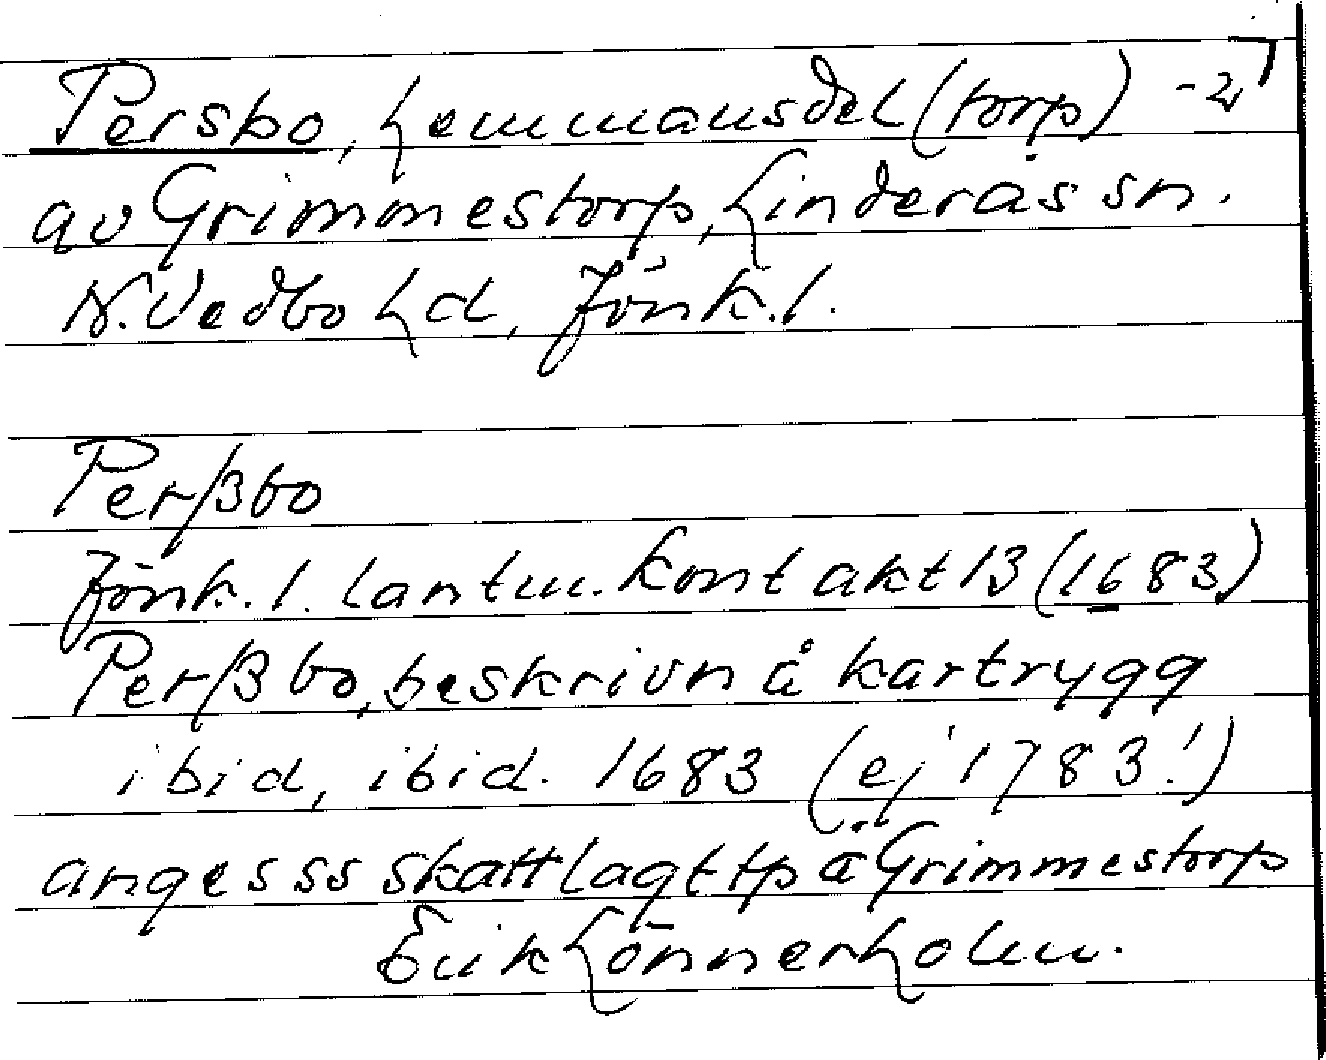 Persbo, hemmansdel (torp)
av Grimmestorp, Linderås sn.
N. Vedbo hd, Jönk. l.
Perßbo
Jönk. l. lantm. kont akt 13 (1683)
Perßbo, beskrivn å kartrygg
ibid, ibid. 1683 (ej 1783!)
anges ss skattlagt tp å Grimmestorp
Erik Lönnerholm.